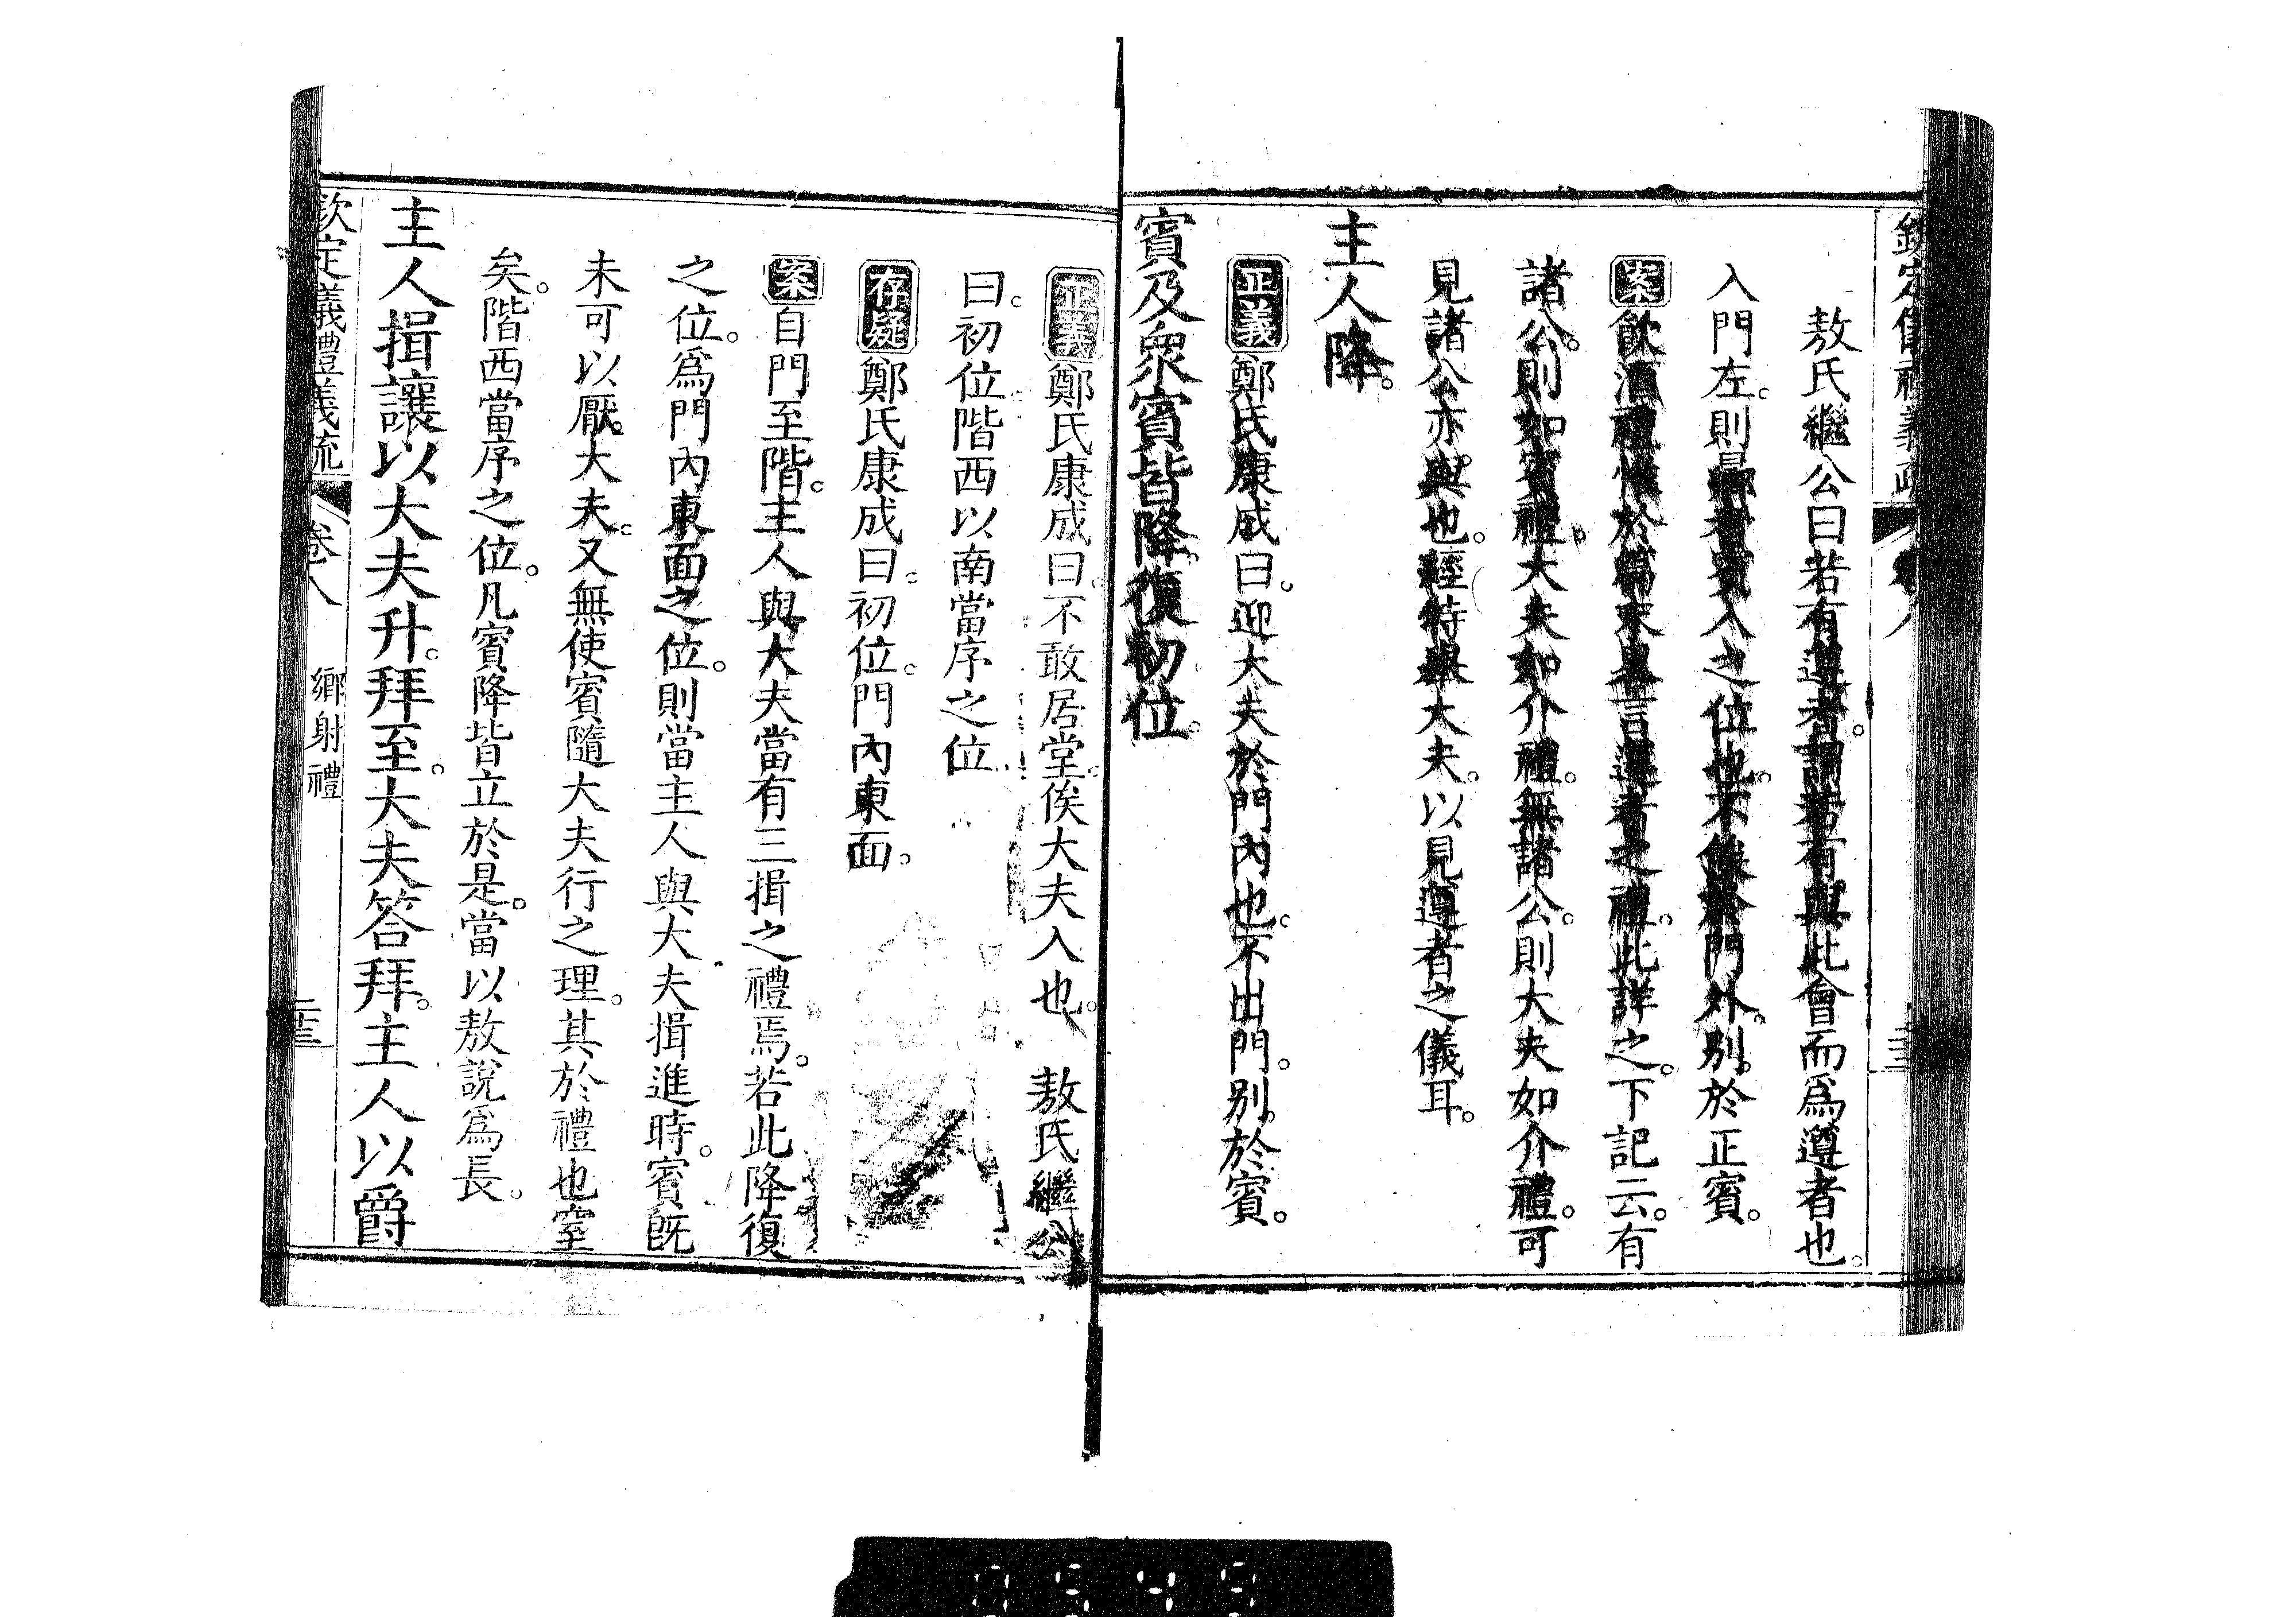 欽定儀禮義疏 卷八
敖氏繼公曰若有遵者。謂若有與此會而爲遵者也。
入門左。則歸者賓入之位也。不俟於門外。別於正賓。
案飲酒禮惟於篇末畧言遵者之禮。此詳之。下記云。有
諸公。則如賓禮。大夫如介禮。無諸公。則大夫如介禮。可
見諸公亦與也。經特舉大夫。以見遵者之儀耳。
主人降。
正義鄭氏康成曰。迎大夫於門內也。不出門。別於賓。
賓及衆賓皆降。復初位。
正義鄭氏康成曰。不敢居堂。俟大夫入也。 敖氏繼公
曰。初位階西以南當序之位
存疑鄭氏康成曰。初位。門內東面。
案自門至階。主人與大夫當有三揖之禮焉。若此降復
之位。爲門內東面之位。則當主人與大夫揖進時。賓旣
未可以厭大夫。又無使賓隨大夫行之理。其於禮也窒
矣。階西當序之位。凡賓降皆立於是。當以敖說爲長。
主人揖讓以大夫升。拜至。大夫答拜。主人以爵
欽定義禮義疏 卷八 鄉射禮